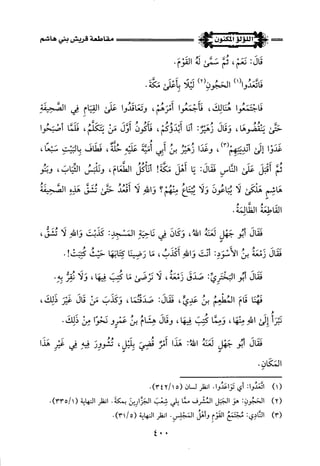 اللؤلؤ المكنون
مقاطعة قريش بني هاشم
قَالَ: نَعَمْ، ثُمَّ سَمَّى لَهُ القَوْمَ.
فَاتَّعَدُوا(١) الحَجُونَ(٢) لَيْلًا بِأَعْلَى مَكَّةَ.
فَاجْتَمَعُوا هُنَالِكَ، فَأَجْمَعُوا أَمْرَهُمْ، وَتَعَاقَدُوا عَلَى القِيَامِ فِي الصَّحِيفَةِ
حَتَّى يَنْقُضُوهَا، وَقَالَ زُهَيْرٌ: أَنَا أَبْدَؤُكُمْ، فَأَكُونُ أَوَّلَ مَنْ يَتَكَلَّمُ، فَلَمَّا أَصْبَحُوا
غَدَوْا إِلَى أَنْدِيَتِهِمْ(٣)، وَغَدَا زُهَيْرُ بنُ أَبِي أُمَيَّةَ عَلَيْهِ حُلَّةٌ، فَطَافَ بِالبَيْتِ سَبْعًا،
ثُمَّ أَقْبَلَ عَلَى النَّاسِ فَقَالَ: يَا أَهْلَ مَكَّةَ! أَنَأْكُلُ الطَّعَامَ، وَنَلْبَسُ الثِّيَابَ، وَبَنُو
هَاشِمٍ هَلْكَى لَا يُبَاعُونَ وَلَا يُبْتَاعُ مِنْهُمْ؟ وَاللهِ لَا أَقْعُدُ حَتَّى تُشَقَّ هَذِهِ الصَّحِيفَةُ
القَاطِعَةُ الظَّالِمَةُ.
فَقَالَ أَبُو جَهْلٍ لَعَنَهُ اللهُ، وَكَانَ فِي نَاحِيَةِ المَسْجِدِ: كَذَبْتَ وَاللهِ لَا تُشَقُّ،
فَقَالَ زَمَعَةُ بنُ الأَسْوَدِ: أَنْتَ وَاللهِ أَكْذَبُ، مَا رَضِينَا كِتَابَهَا حَيْثُ كُتِبَتْ!.
فَقَالَ أَبُو البَخْتَرِيِّ: صَدَقَ زَمَعَةُ، لَا نَرْضَى مَا كُتِبَ فِيهَا، وَلَا نُقِرُّ بِهِ.
فَهُنَا قَامَ المُطْعِمُ بنُ عَدِيٍّ، فَقَالَ: صَدَقْتُمَا، وَكَذَبَ مَنْ قَالَ غَيْرَ ذَلِكَ،
نَبْرَأُ إِلَى اللهِ مِنْهَا، وَمِمَّا كُتِبَ فِيهَا، وَقَالَ هِشَامُ بنُ عَمْرٍو نَحْوًا مِنْ ذَلِكَ.
فَقَالَ أَبُو جَهْلٍ لَعَنَهُ اللهُ: هَذَا أَمْرٌ قُضِيَ بِلَيْلٍ، تُشُووِرَ فِيهِ فِي غَيْرِ هَذَا
المَكَانِ.
(١) اتَّعَدُوا: أي تَوَاعَدُوا. انظر لسان (٣٤٢/١٥).
(٢) الحَجُونُ: هوَ الجَبَلُ المُشْرِفُ ممَّا يلي شِعْبَ الجَزَّارِينَ بمكة. انظر النهاية (٣٣٥/١).
(٣) النَّادِي: مُجْتَمَعُ القَوْمِ وَأَهْلُ المَجْلِسِ. انظر النهاية (٣١/٥).
٤٠٠